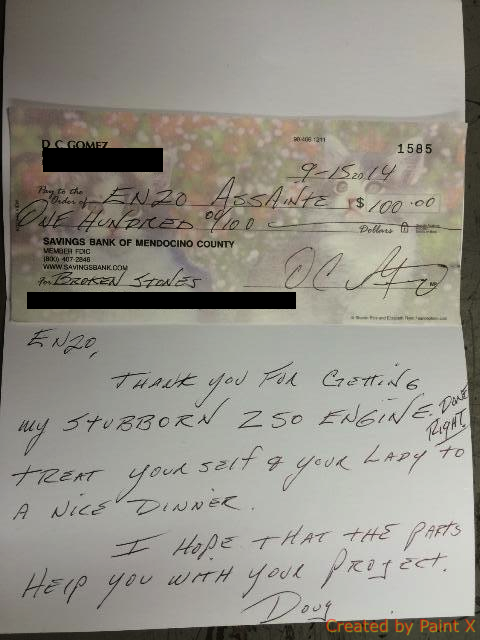 D C GOMEZ
90-466 1211
1585
9-15 2014
Pay to the
Order of ENZO ASSAINTE $ 100.00
ONE HUNDRED 00/100 Dollars
SAVINGS BANK OF MENDOCINO COUNTY
MEMBER FDIC
(800) 407-2846
WWW.SAVINGSBANK.COM
For BROKEN STONES
ENZO,
THANK YOU FOR GETTING
MY STUBBORN 250 ENGINE. DONE
RIGHT.
TREAT YOUR SELF & YOUR LADY TO
A NICE DINNER.
I HOPE THAT THE PARTS
HELP YOU WITH YOUR PROJECT.
DOUG
Created by Paint X